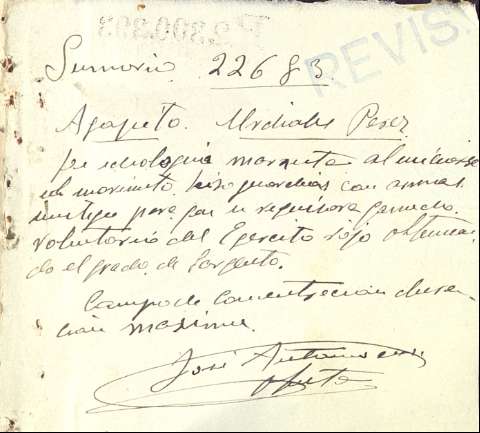 REVIS
Sumario. 22683.
Agapito. Urdiales Perez
de ideologia marxista al iniciarse
el movimiento hizo guardias con armas
para que se ganado.
Voluntario del Ejercito rojo obtenien-
do el grado de Sargento.
Campo de Concentracion dura-
cion maxima.
José Antonio